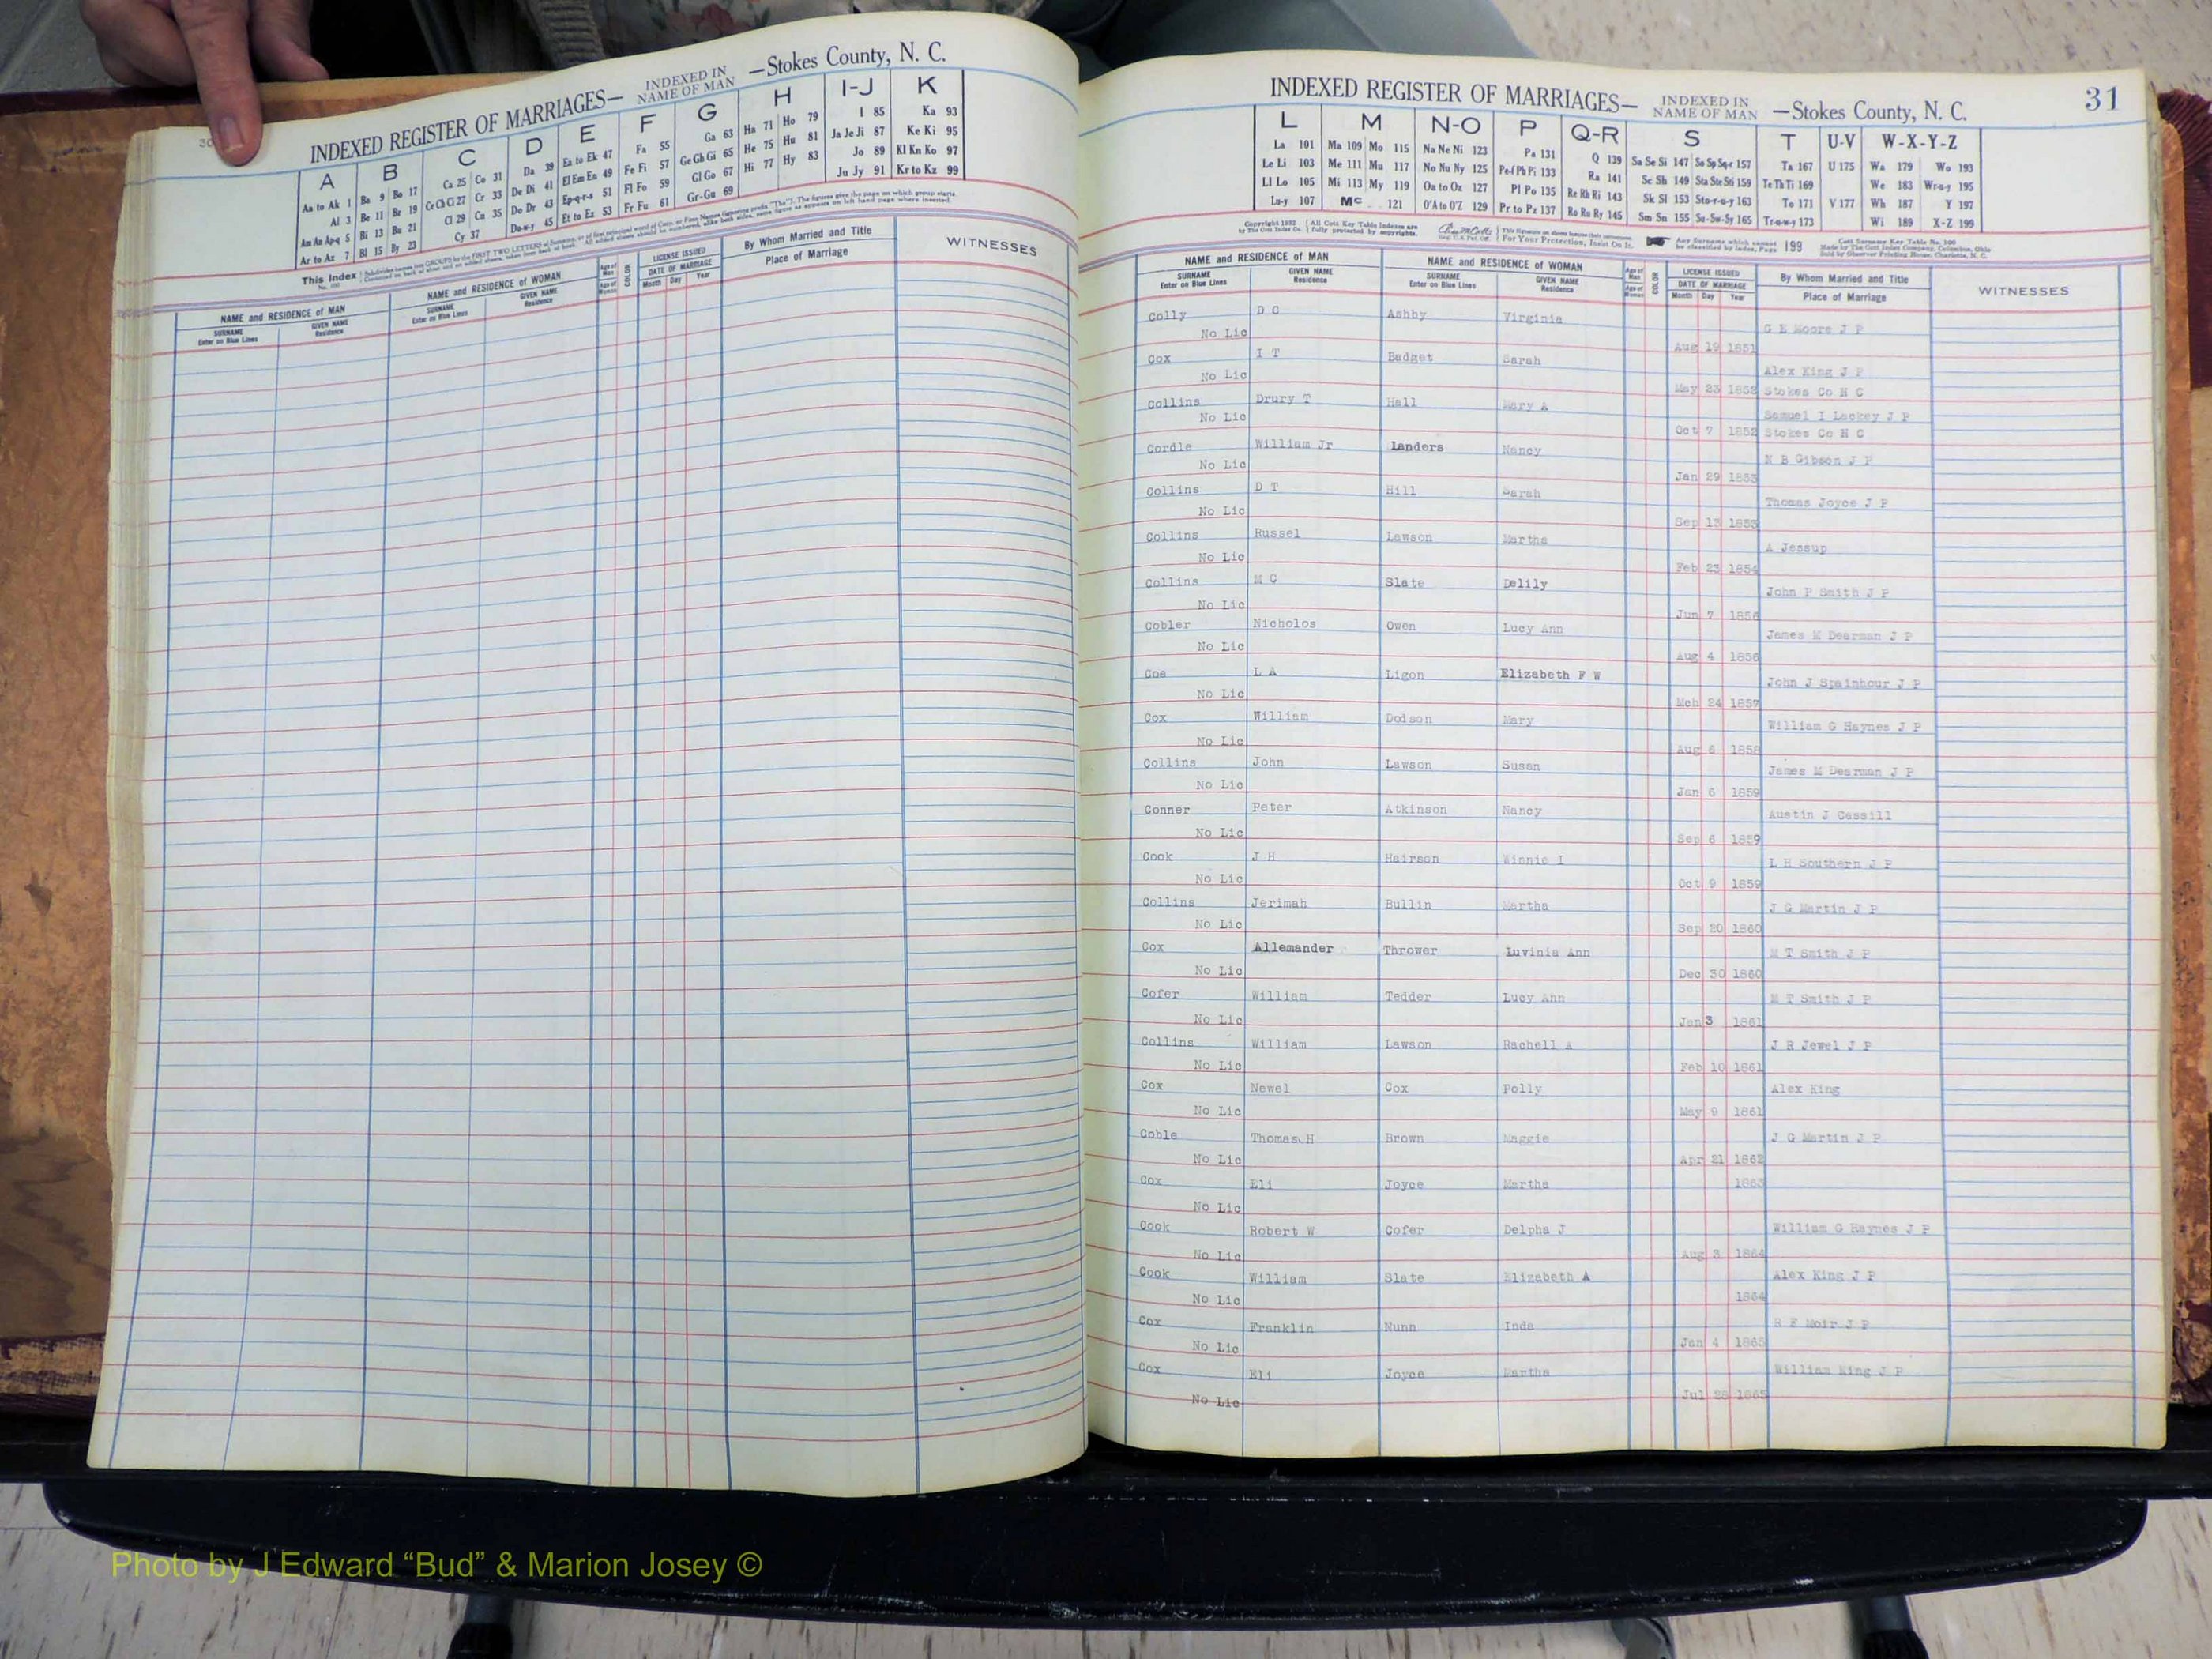 30
INDEXED REGISTER OF MARRIAGES— INDEXED IN NAME OF MAN —Stokes County, N. C.
A B C D E F G H I-J K
Aa to Ak 1 Ba 9 Bo 17 Ca 25 Co 31 Da 39 Ea to Ek 47 Fa 55 Ga 63 Ha 71 Ho 79 I 85 Ka 93
Al 3 Be 11 Br 19 Ce Ch Ci 27 Cr 33 De Di 41 El Em En 49 Fe Fi 57 Ge Gh Gi 65 He 75 Hu 81 Ja Je Ji 87 Ke Ki 95
Am An Ap-q 5 Bi 13 Bu 21 Cl 29 Cu 35 Do Dr 43 Ep-q-r-s 51 Fl Fo 59 Gl Go 67 Hi 77 Hy 83 Jo 89 Kl Kn Ko 97
Ar to Az 7 Bl 15 By 23 Cy 37 Du-w-y 45 Et to Ez 53 Fr Fu 61 Gr-Gu 69 Ju Jy 91 Kr to Kz 99
This Index
NAME and RESIDENCE of MAN NAME and RESIDENCE of WOMAN Age of Man COLOR LICENSE ISSUED By Whom Married and Title WITNESSES
SURNAME Enter on Blue Lines GIVEN NAME Residence SURNAME Enter on Blue Lines GIVEN NAME Residence Age of Woman DATE OF MARRIAGE Month Day Year Place of Marriage
INDEXED REGISTER OF MARRIAGES— INDEXED IN NAME OF MAN —Stokes County, N. C. 31
L M N-O P Q-R S T U-V W-X-Y-Z
La 101 Ma 109 Mo 115 Na Ne Ni 123 Pa 131 Q 139 Sa Se Si 147 So Sp Sq-r 157 Ta 167 U 175 Wa 179 Wo 193
Le Li 103 Me 111 Mu 117 No Nu Ny 125 Pe-f Ph Pi 133 Ra 141 Sc Sh 149 Sta Ste Sti 159 Te Th Ti 169 We 183 Wr-u-y 195
Ll Lo 105 Mi 113 My 119 Oa to Oz 127 Pl Po 135 Re Rh Ri 143 Sk Sl 153 Sto-r-u-y 163 To 171 V 177 Wh 187 Y 197
Lu-y 107 Mc 121 O'A to O'Z 129 Pr to Pz 137 Ro Ru Ry 145 Sm Sn 155 Su-Sw-Sy 165 Tr-u-w-y 173 Wi 189 X-Z 199
Any Surname which cannot be classified by Index, Page 199
NAME and RESIDENCE of MAN NAME and RESIDENCE of WOMAN Age of Man COLOR LICENSE ISSUED By Whom Married and Title WITNESSES
SURNAME Enter on Blue Lines GIVEN NAME Residence SURNAME Enter on Blue Lines GIVEN NAME Residence Age of Woman DATE OF MARRIAGE Month Day Year Place of Marriage
Colly D C Ashby Virginia G E Moore J P
No Lic Aug 19 1851
Cox I T Badget Sarah Alex King J P
No Lic May 23 1852 Stokes Co N C
Collins Drury T Hall Mary A Samuel I Lackey J P
No Lic Oct 7 1852 Stokes Co N C
Cordle William Jr Landers Nancy N B Gibson J P
No Lic Jan 29 1853
Collins D T Hill Sarah Thomas Joyce J P
No Lic Sep 13 1853
Collins Russel Lawson Martha A Jessup
No Lic Feb 23 1854
Collins M C Slate Delily John P Smith J P
No Lic Jun 7 1856
Cobler Nicholos Owen Lucy Ann James M Dearman J P
No Lic Aug 4 1856
Coe L A Ligon Elizabeth F W John J Spainhour J P
No Lic Mch 24 1857
Cox William Dodson Mary William G Haynes J P
No Lic Aug 6 1858
Collins John Lawson Susan James M Dearman J P
No Lic Jan 6 1859
Conner Peter Atkinson Nancy Austin J Cassill
No Lic Sep 6 1859
Cook J H Hairson Winnie I L H Southern J P
No Lic Oct 9 1859
Collins Jerimah Bullin Martha J G Martin J P
No Lic Sep 20 1860
Cox Allemander Thrower Luvinia Ann M T Smith J P
No Lic Dec 30 1860
Cofer William Tedder Lucy Ann M T Smith J P
No Lic Jan 3 1861
Collins William Lawson Rachell A J R Jewel J P
No Lic Feb 10 1861
Cox Newel Cox Polly Alex King
No Lic May 9 1861
Coble Thomas H Brown Maggie J G Martin J P
No Lic Apr 21 1862
Cox Eli Joyce Martha 1863
No Lic
Cook Robert W Cofer Delpha J William G Haynes J P
No Lic Aug 3 1864
Cook William Slate Elizabeth A Alex King J P
No Lic 1864
Cox Franklin Nunn Inda R F Moir J P
No Lic Jan 4 1865
Cox Eli Joyce Martha William King J P
No Lic Jul 28 1865
Photo by J Edward “Bud” & Marion Josey ©